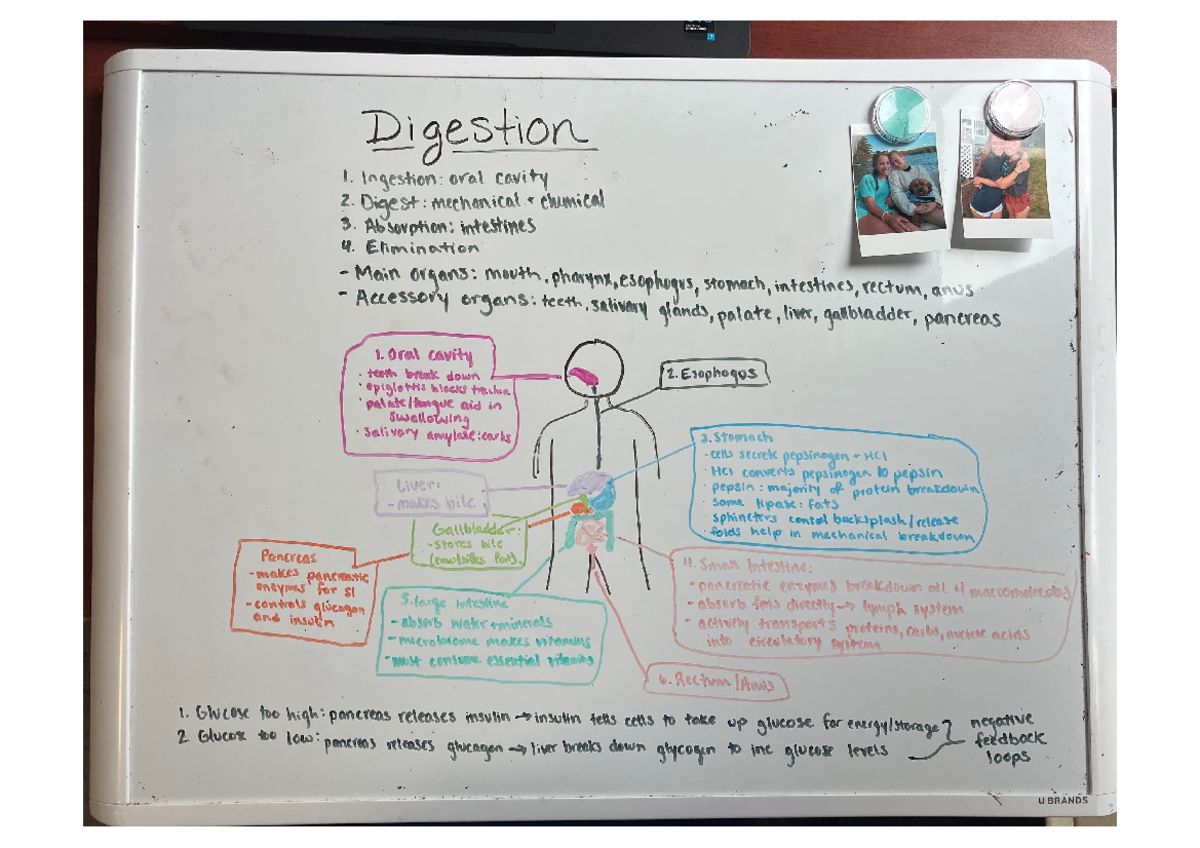 Digestion
1. Ingestion: oral cavity
2. Digest: mechanical + chemical
3. Absorption: intestines
4. Elimination
- Main organs: mouth, pharynx, esophagus, stomach, intestines, rectum, anus
- Accessory organs: teeth, salivary glands, palate, liver, gallbladder, pancreas
1. Oral cavity
· teeth break down
· epiglottis blocks trachea
· palate/tongue aid in
swallowing
· salivary amylase: carbs
2. Esophagus
3. Stomach
· cells secrete pepsinogen + HCl
· HCl converts pepsinogen to pepsin
· pepsin: majority of protein breakdown
· some lipase: fats
sphincters control backsplash/release
folds help in mechanical breakdown
Liver:
- makes bile
Gallbladder:
- stores bile
(emulsifies fats)
Pancreas
- makes pancreatic
enzymes for SI
- controls glucagon
and insulin
4. Small Intestine:
- pancreatic enzymes breakdown all 4 macromolecules
- absorb fats directly → lymph system
- actively transports proteins, carbs, nucleic acids
into circulatory system
5. large intestine
- absorb water + minerals
- microbiome makes vitamins
- must consume essential vitamins
6. Rectum/Anus
1. Glucose too high: pancreas releases insulin → insulin tells cells to take up glucose for energy/storage
2. Glucose too low: pancreas releases glucagon → liver breaks down glycogen to inc glucose levels
negative
feedback
loops
U BRANDS